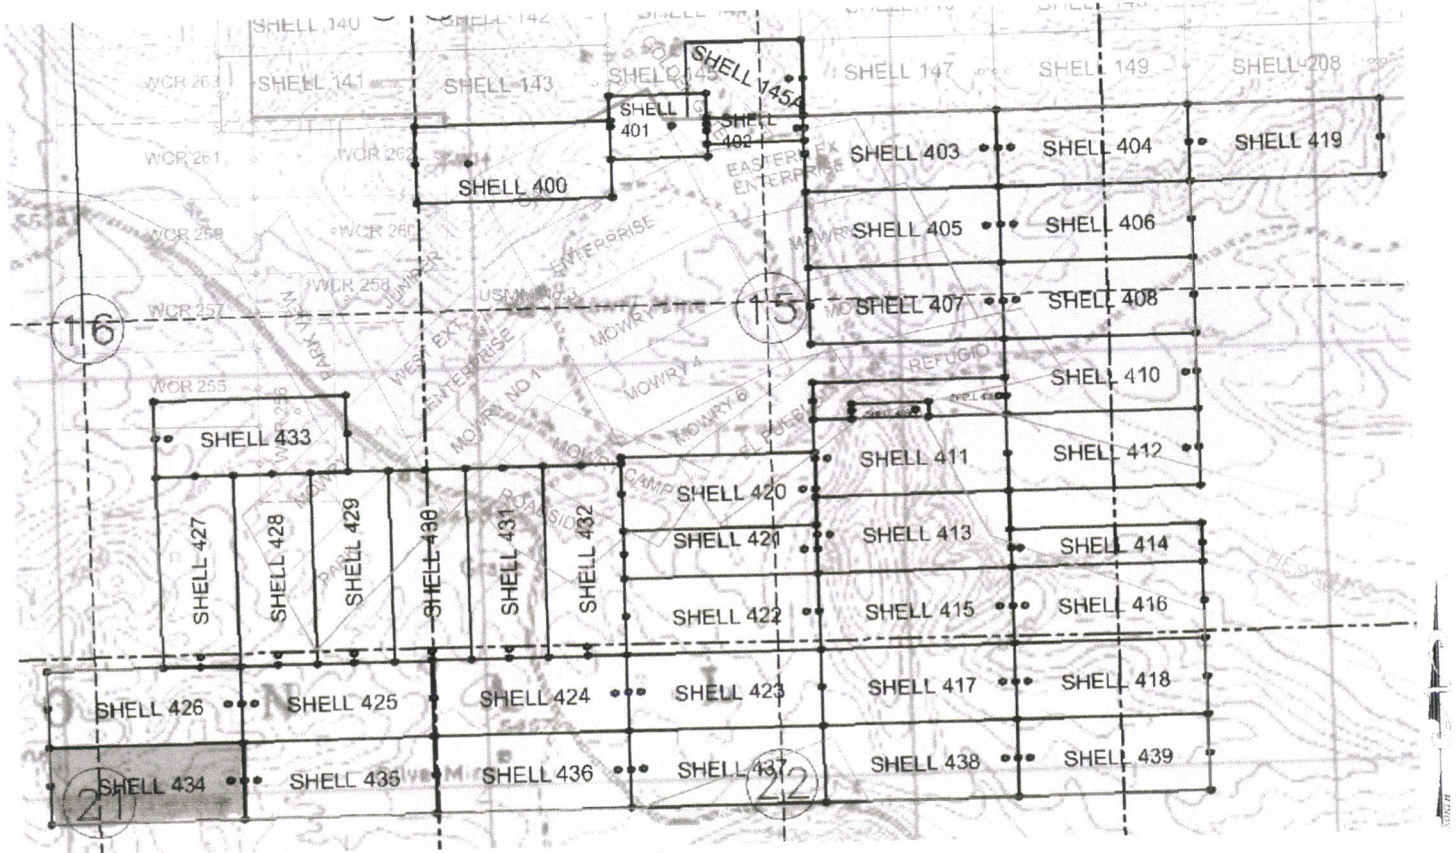 SHELL 140
SHELL 142
WCR 263
SHELL 141
SHELL 143
SHELL 145
SHELL 145A
SHELL 147
SHELL 149
SHELL 208
SHELL
401
SHELL
402
WCR 261
WCR 262
SHELL 400
EASTERN EX
ENTERPRISE
SHELL 403
SHELL 404
SHELL 419
WCR 259
WCR 260
ENTERPRISE
MOWRY
SHELL 405
SHELL 406
WCR 258
JUNIPER
WCR 257
16
15
MOWRY
SHELL 407
SHELL 408
PARK VIEW
WEST EXT
ENTERPRISE
MOWRY 4
REFUGIO
SHELL 410
WCR 255
MOWRY NO 1
MOWRY 6
EL PUEBLO
SHELL 433
SHELL 411
SHELL 412
MOWRY CAMP
SHELL 420
ROADSIDE
SHELL 427
SHELL 428
SHELL 429
SHELL 430
SHELL 431
SHELL 432
SHELL 421
SHELL 413
SHELL 414
SHELL 422
SHELL 415
SHELL 416
O N A L
SHELL 426
SHELL 425
SHELL 424
SHELL 423
SHELL 417
SHELL 418
SHELL 434
SHELL 435
SHELL 436
SHELL 437
SHELL 438
SHELL 439
21
22
NORTH